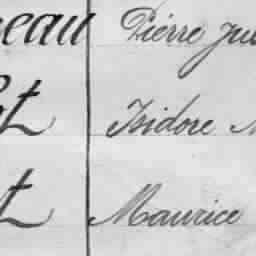 eau Pierre Jul
t Isidore M
t Maurice